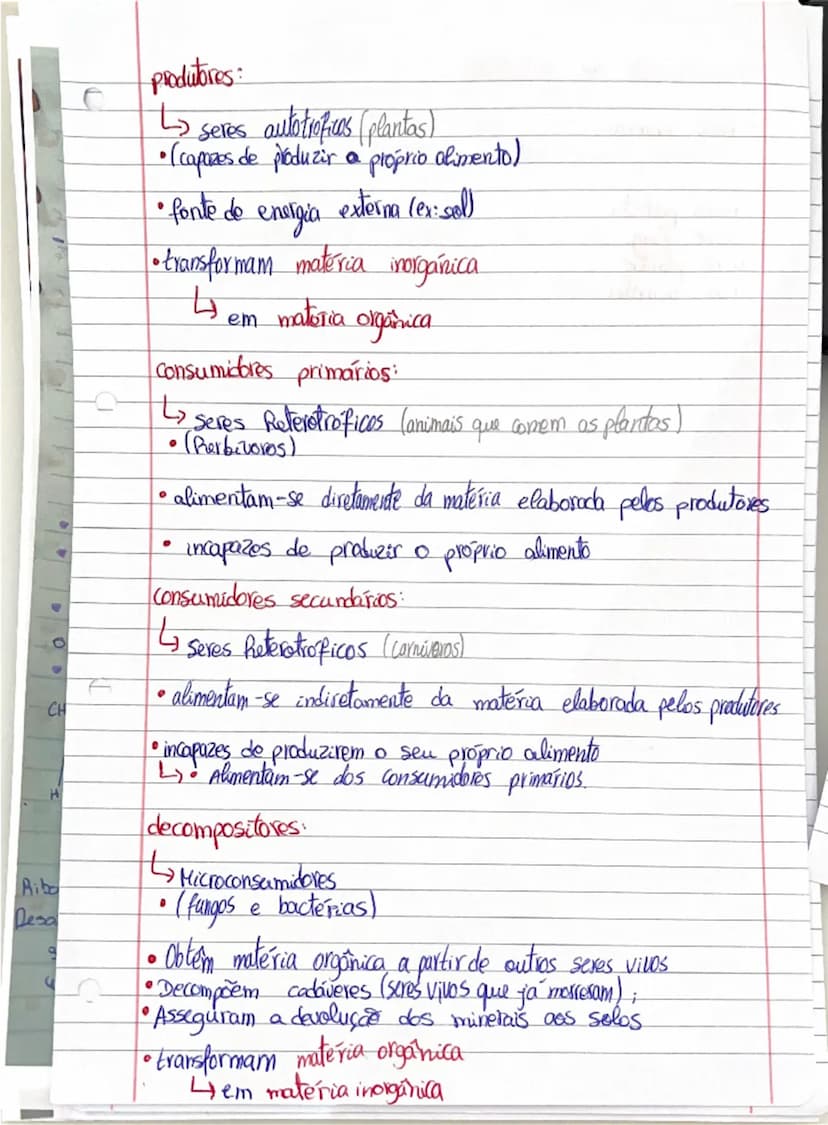 produtores:
↳ seres autotroficos (plantas)
• (capazes de produzir o próprio alimento)
• fonte de energia externa (ex: sol)
• transformam matéria inorgânica
↳ em matéria orgânica
consumidores primários:
↳ seres Heterotróficos (animais que comem as plantas)
• (Herbívoros)
• alimentam-se diretamente da matéria elaborada pelos produtores
• incapazes de produzir o próprio alimento
consumidores secundários:
↳ seres heterotroficos (carnívoros)
• alimentam-se indiretamente da matéria elaborada pelos produtores
• incapazes de produzirem o seu próprio alimento
↳ • Alimentam-se dos consumidores primários.
decompositores:
↳ Microconsumidores
• (fungos e bactérias)
• Obtêm matéria orgânica a partir de outros seres vivos
• Decompõem cadáveres (seres vivos que já morreram) ;
• Asseguram a devolução dos minerais aos solos
• transformam matéria orgânica
↳ em matéria inorgânica
CH
H
Ribo
Deso